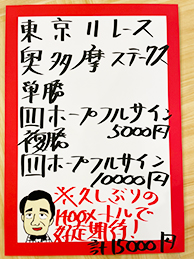 東京11レース
奥多摩ステークス
単勝
回ホープフルサイン
5000円
複勝
回ホープフルサイン
10000円
※久しぶりの
1400メートルで
好走期待!
計15000円